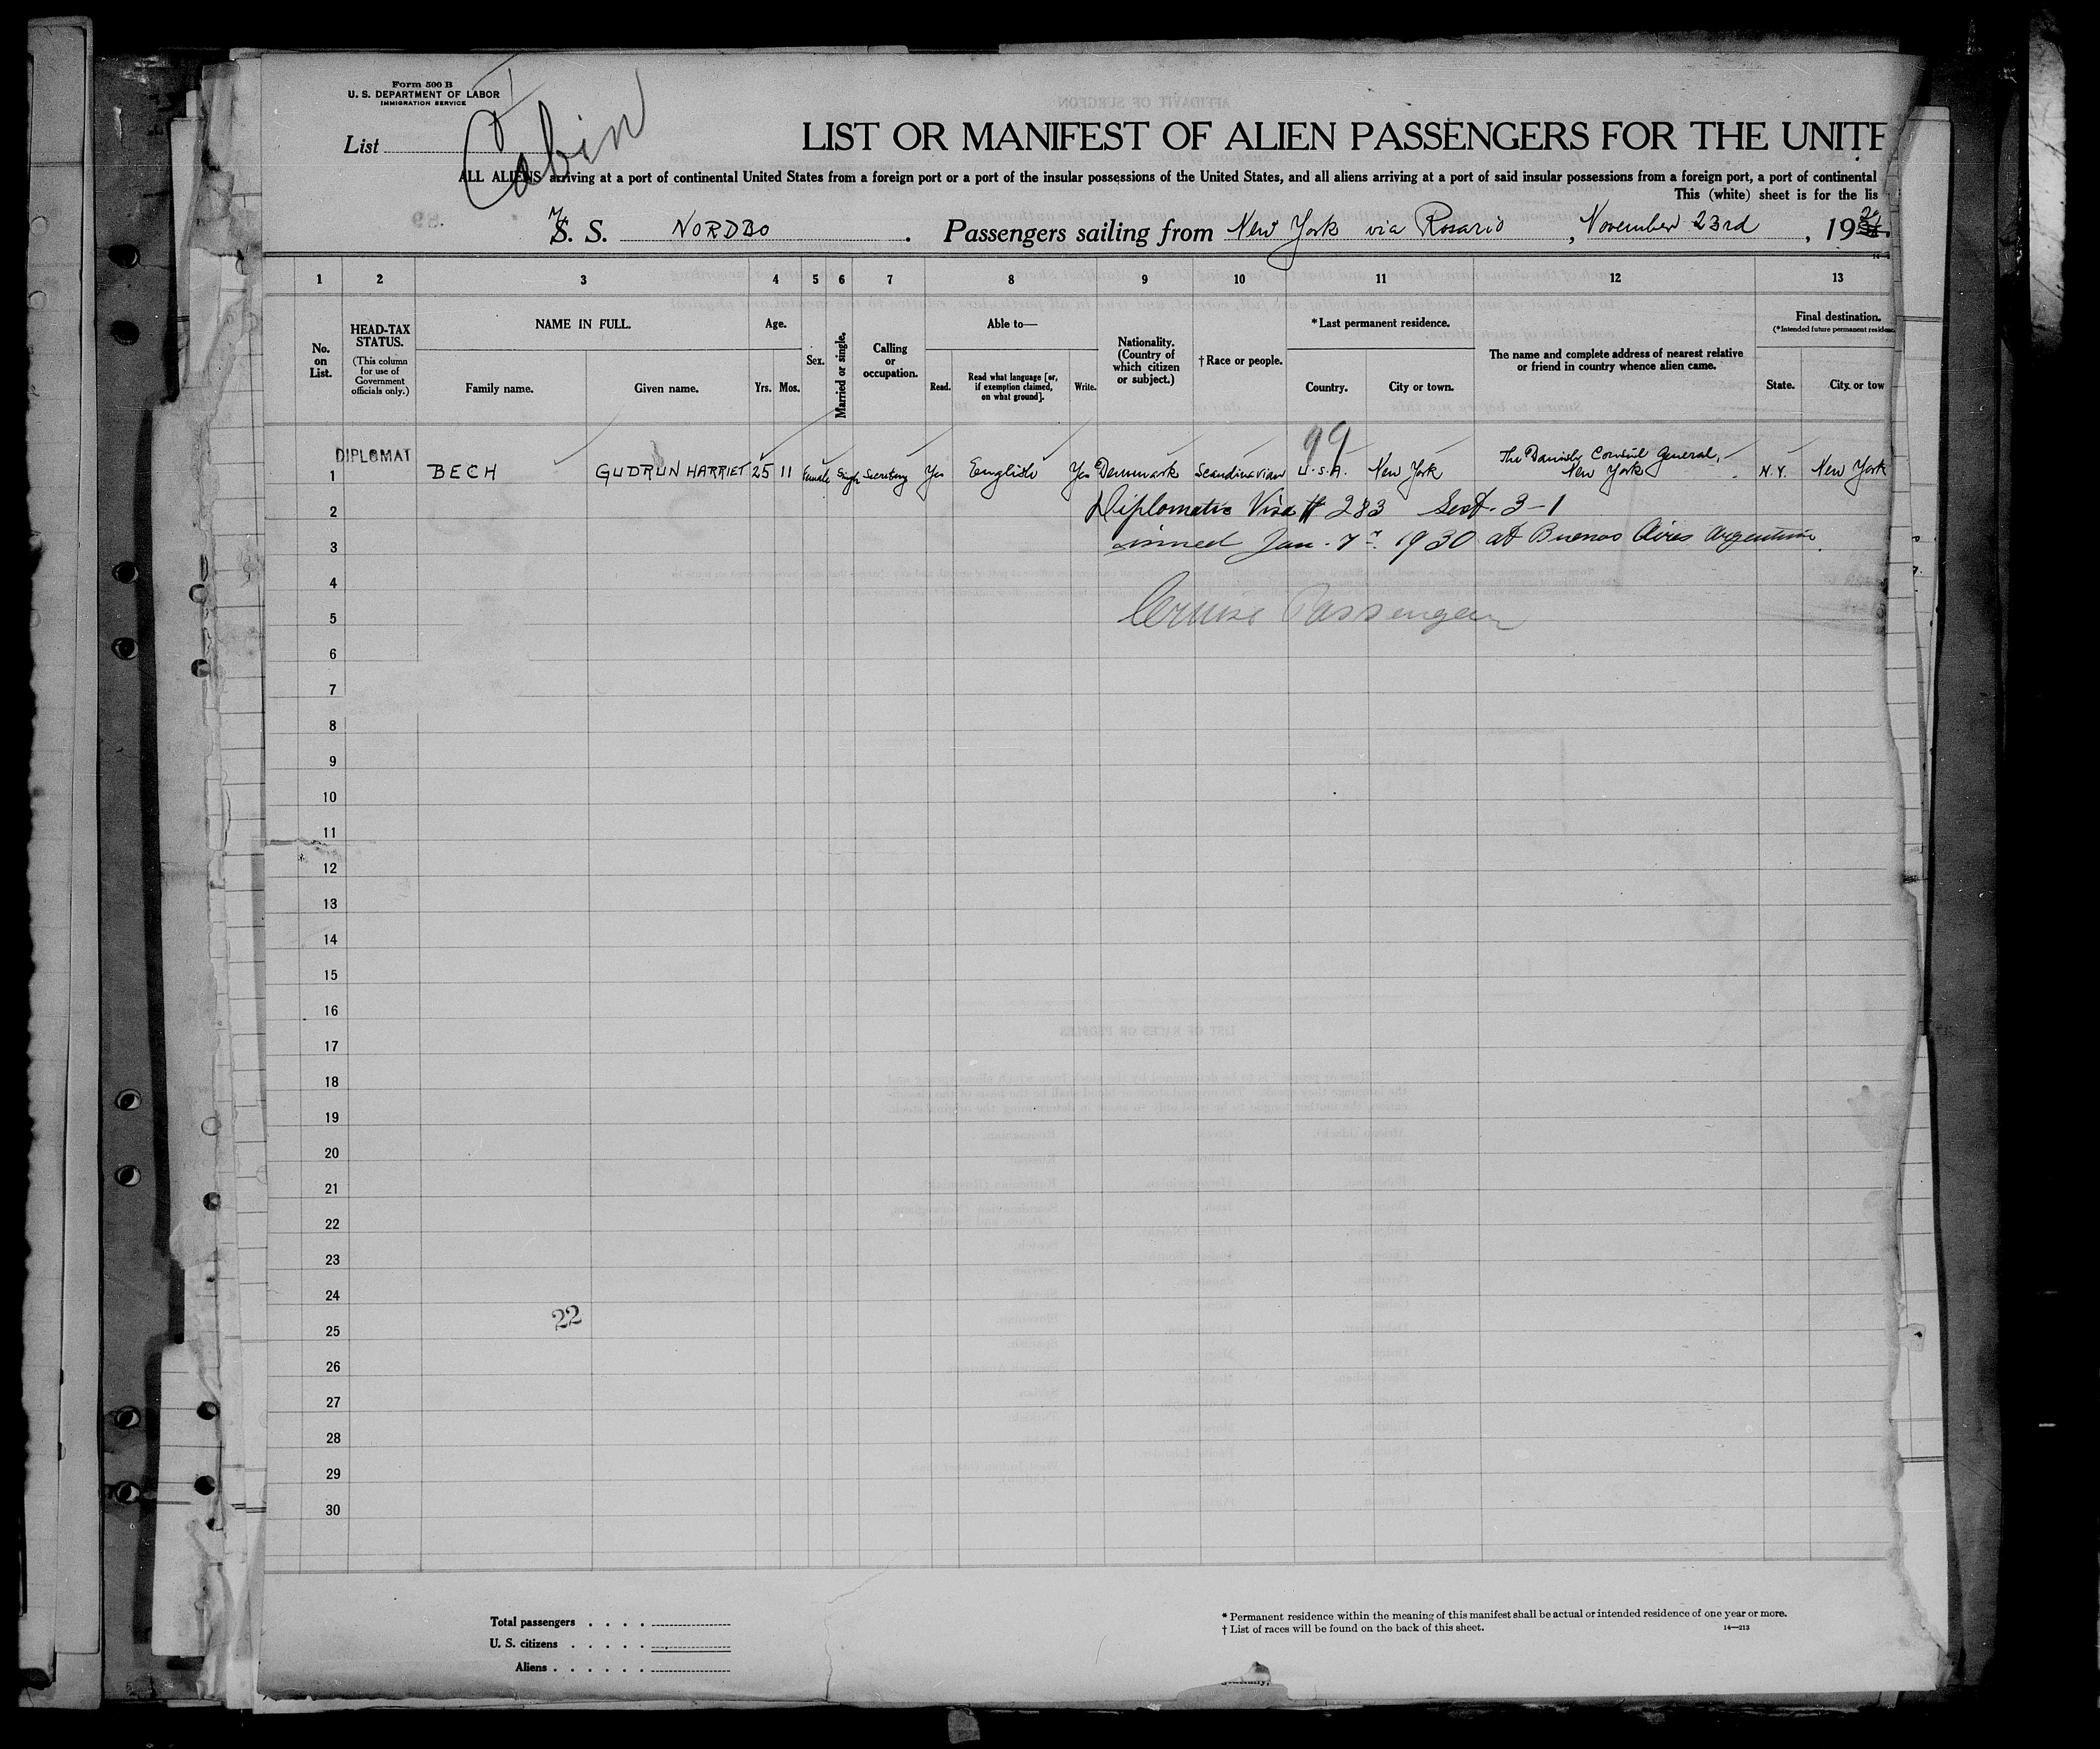 Form 500 B
U. S. DEPARTMENT OF LABOR
IMMIGRATION SERVICE
Cabin
List
LIST OR MANIFEST OF ALIEN PASSENGERS FOR THE UNITE
ALL ALIENS arriving at a port of continental United States from a foreign port or a port of the insular possessions of the United States, and all aliens arriving at a port of said insular possessions from a foreign port, a port of continental
This (white) sheet is for the lis
M. S. NORDBO . Passengers sailing from New York via Rosario , November 23rd , 1929
1 2 3 4 5 6 7 8 9 10 11 12 13
No. on List.
HEAD-TAX STATUS.
(This column for use of Government officials only.)
NAME IN FULL.
Family name. Given name.
Age.
Yrs. Mos.
Sex.
Married or single.
Calling or occupation.
Able to—
Read. Read what language [or, if exemption claimed, on what ground]. Write.
Nationality. (Country of which citizen or subject.)
†Race or people.
*Last permanent residence.
Country. City or town.
The name and complete address of nearest relative or friend in country whence alien came.
Final destination.
(*Intended future permanent residenc
State. City or tow
99
DIPLOMAT
1 BECH GUDRUN HARRIET 25 11 Female Single Secretary Yes English Yes Denmark Scandinavian U.S.A. New York The Danish Consul General, New York N.Y. New York
2 Diplomatic Visa # 283 Sect. 3-1
3 issued Jan. 7 1930 at Buenos Aires Argentina
4
5 Cruise Passenger
6
7
8
9
10
11
12
13
14
15
16
17
18
19
20
21
22
23
24
22
25
26
27
28
29
30
Total passengers
U. S. citizens
Aliens
* Permanent residence within the meaning of this manifest shall be actual or intended residence of one year or more.
† List of races will be found on the back of this sheet.
14—213